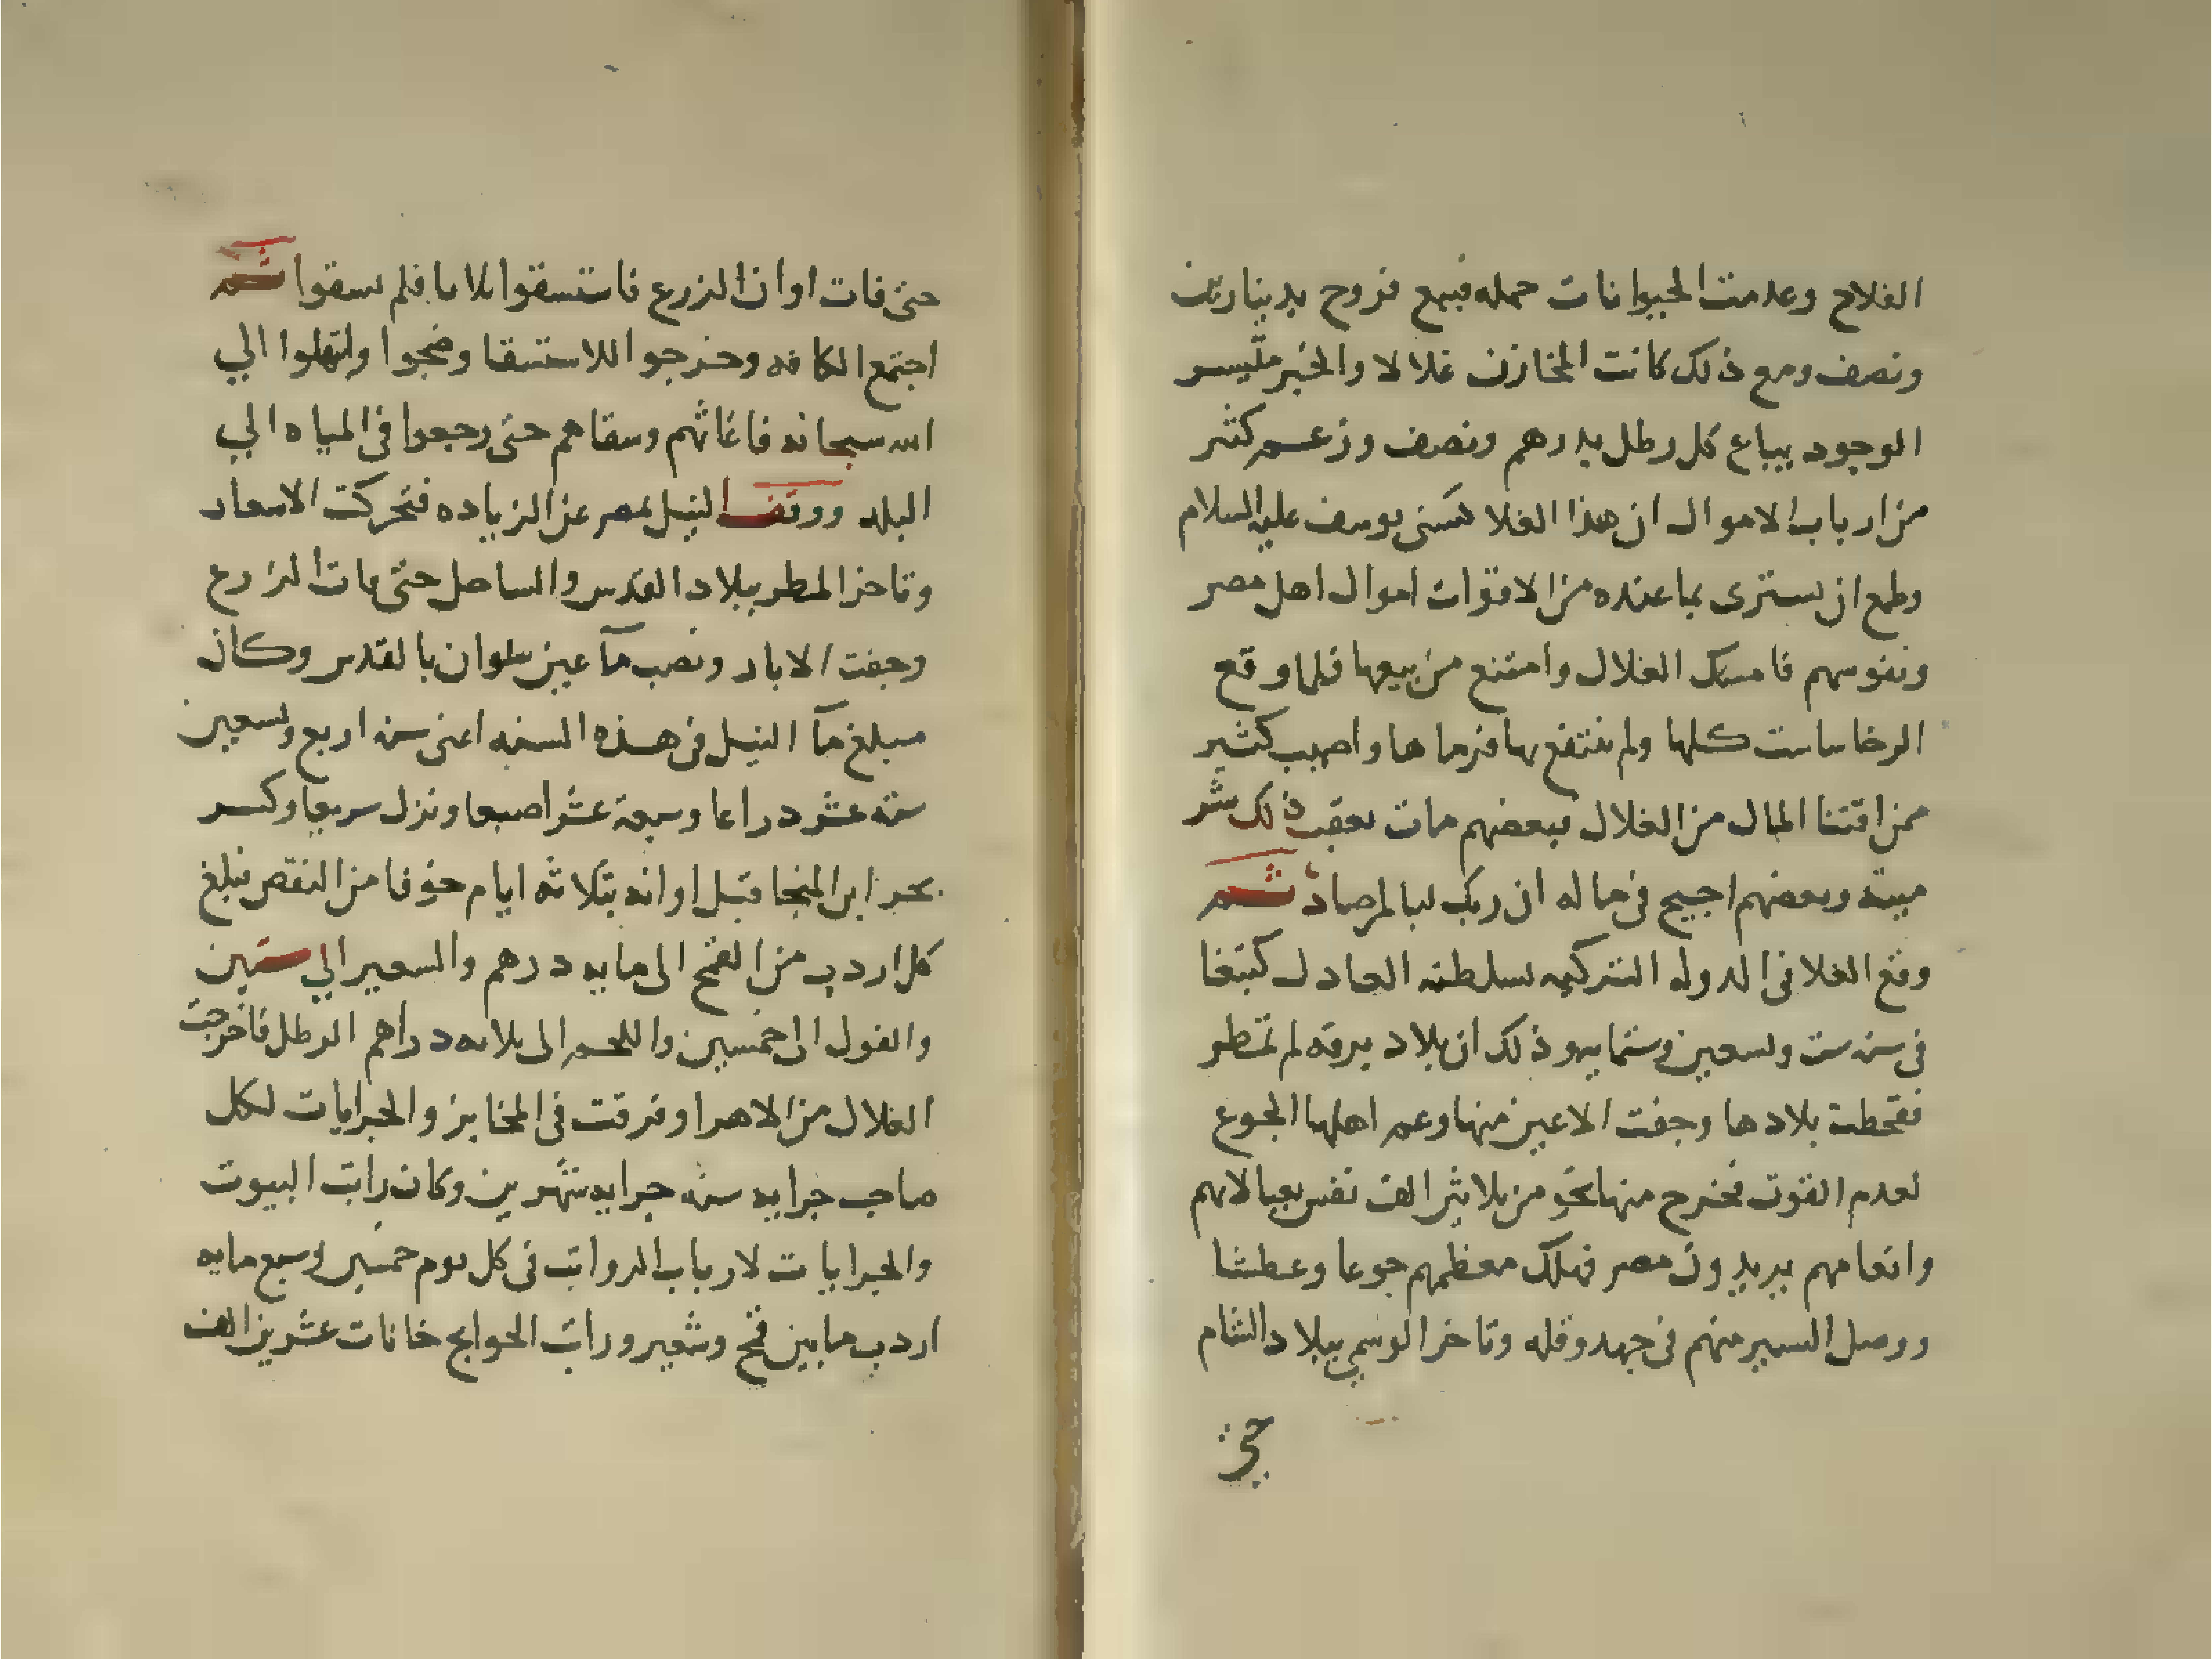 الفلاح وعدمت الحيوانات جمله فبيع فروج بدينارين
ونصف ومع ذلك كانت المخازن غلالا والخبز متيسر
الوجود يباع كل رطل بدرهم ونصف وزعم كثير
من ارباب الاموال ان هذا الغلا كسنى يوسف عليه السلام
وطمع ان يسترى بما عنده من الاقوات اموال اهل مصر
ونفوسهم فامسك الغلال وامتنع من بيعها فلما وقع
الرخا ساست كلها ولم ينتفع بها فرماها واصيب كثير
ممن اقتنا المال من الغلال فبعضهم مات بعقب ذلك شر
ميتة وبعضهم اجيح في ماله ان ربك لبالمرصاد ثم
وقع الغلا في الدوله التركيه لسلطنه العادل كتبغا
في سنه ست وتسعين وستمايه وذلك ان بلاد برقه لم تمطر
فقحطت بلادها وجفت الاعين منها وعم اهلها الجوع
لعدم القوت فخرج منها نحو من ثلاثين الف نفس بعيالاتهم
وانعامهم يريدون مصر فهلك معظمهم جوعا وعطشا
ووصل اليسير منهم في جهد وقله وتاخر الوسمي ببلاد الشام
حتى
حتى فات اوان الزرع فاستسقوا ثلاثا فلم يسقوا ثم
اجتمع الكافه وخرجوا للاستسقا وضجوا وابتهلوا الي
الله سبحانه فاغاثهم وسقاهم حتى رجعوا في المياه الي
البلد ووقف النيل بمصر عن الزياده فتحركت الاسعار
وتاخر المطر ببلاد القدس والساحل حتى فات الزرع
وجفت الابار ونضب مآ عين سلوان بالقدس وكان
مبلغ مآ النيل في هذه السنه اعنى سنه اربع وتسعين
ستة عشر دراعا وسبعة عشر اصبعا ونزل سريعا وكسر
بحر ابن المنجا قبل اوانه بثلاثه ايام خوفا من النقص فبلغ
كل اردب من القمح الى مايه درهم والسعير الي ستين
والفول الى خمسين واللحم الى ثلاثه دراهم الرطل فاخرجت
الغلال من الاهرا وفرقت في المخابز والجرايات لكل
صاحب جرايه سته جرايه شهرين وكان راتب البيوت
والجرايات لارباب الرواتب في كل يوم خمسين وسبع مايه
اردب ما بين قمح وشعير وراتب الحوايج خانات عشرين الف